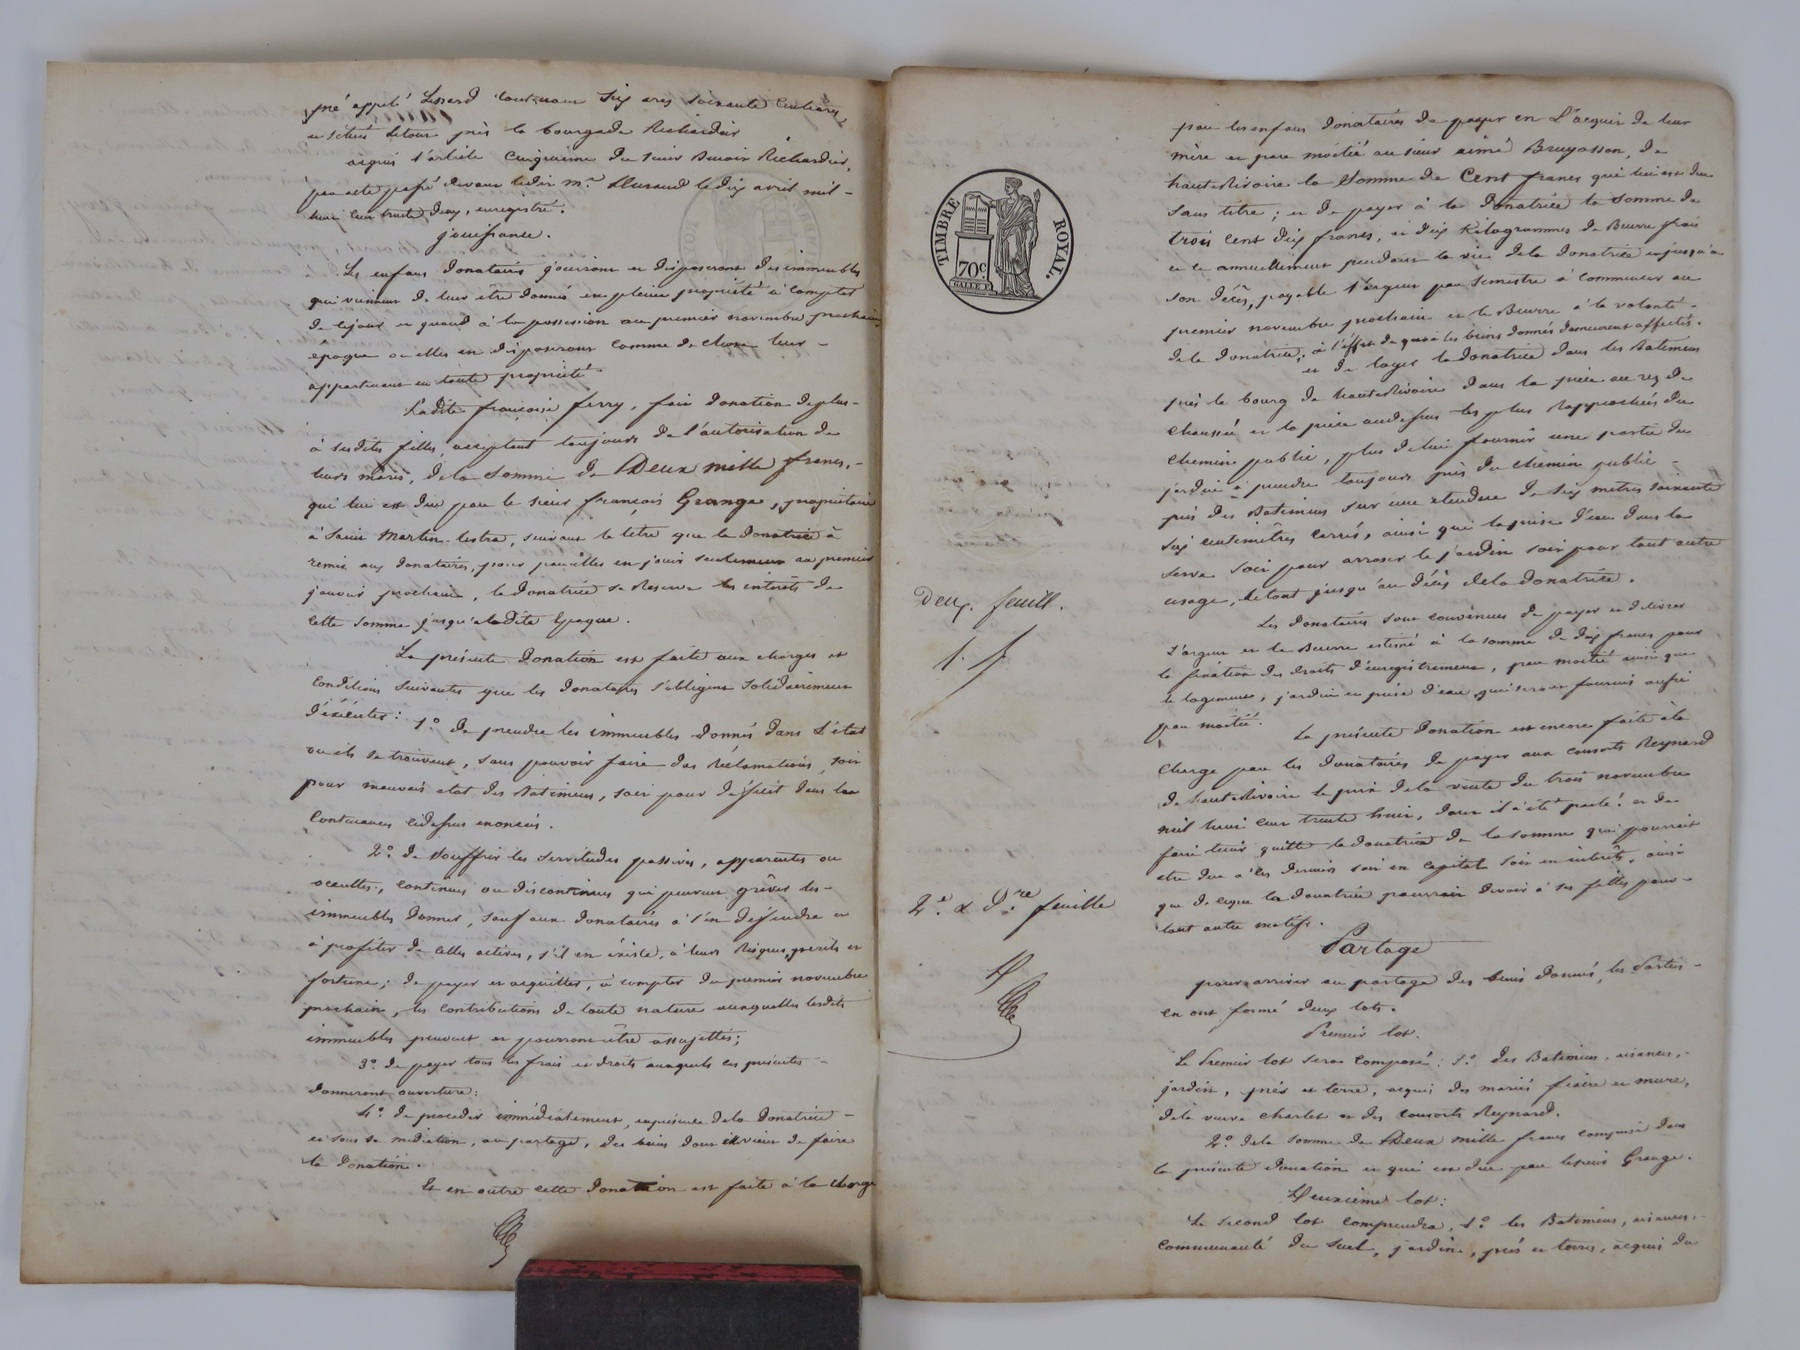 pré appelé Lissard contenant six ares soixante centiares,
et situés le tout près la bourgade Richardier
acquis l'article cinquième du sieur Richardier,
par acte passé devant ledit Mre Durand le dix avril mil-
huit cent trente deux, enregistré.
jouissance.
Les enfans donataires jouiront et disposeront des immeubles
qui viennent de leur être donnés en pleine propriété à compter
de ce jour et quand à la possession au premier novembre prochain
époque où elles en disposeront comme de chose leur-
appartenant en toute propriété.
Ladite françoise ferry, fait donation de plus-
à sesdites filles, acceptant toujours de l'autorisation de
leurs maris, de la somme de Deux mille francs,-
qui lui est due par le sieur françois Grange, propriétaire
à Saint Martin-lestra, suivant le titre que la donatrice à
remis aux donataires, pour par elles en jouir seulement au premier
janvier prochain, la donatrice se reserve les intérêts de
cette somme jusqu'a ladite époque.
La présente donation est faite aux charges et
conditions suivantes que les donataires s'obligent solidairement
d'éxécuter: 1º. de prendre les immeubles donnés dans l'état
ou ils se trouvent, sans pouvoir faire des réclamations, soit
pour mauvais etat des Batimens, soit pour déficit dans les
contenances cidessus énoncés.
2º. de souffrir les servitudes passives, apparentes ou
occultes, continues ou discontinues qui peuvent grêver les-
immeubles donnés, sauf aux donataires à s'en deffendre et
à profiter de celles actives, s'il en éxiste, à leurs risques, perils et
fortune; de payer et acquitter, à compter du premier novembre
prochain, les contributions de toute nature auxquelles lesdits
immeubles peuvent et pourront être assujettis;
3º. de payer tous les frais et droits auxquels ces présentes-
donneront ouverture:
4º. de proceder immédiatement, en présence de la donatrice-
et sous sa médiation, au partage, des biens dont il vient de faire
la donation.
Et en outre cette donation est faite à la charge
TIMBRE ROYAL.
70c.
GALLE F.
deux. feuill.
2e. & dre. feuille
par les enfans donataires de payer en l'acquit de leur
mère et par moitié au sieur aimé Bruyasson, de
hauteRivoire la somme de Cent francs qui lui est due
sans titre; et de payer à la donatrice la somme de
trois cent dix francs, et dix Kilogrammes de Beurre frais
et ce annuellement pendant la vie de la donatrice et jusqu'à
son décès, payable l'argent par semestre à commencer au
premier novembre prochain et le Beurre à la volonté-
de la donatrice, à l'effet de quoi les biens donnés demeurent affectés.
et de loger la donatrice dans les Batimens
près le bourg de hauteRivoire dans la pièce au rez de
chaussée et la pièce audessus les plus rapprochées du
chemin public, plus de lui fournir une partie du
jardin à prendre toujours près du chemin public-
près des Batimens sur une étendue de six metres soixante
six centimètres carrés, ainsi que la prise d'eau dans la
serve soit pour arroser le jardin soit pour tout autre
usage, le tout jusqu'au décès de la donatrice.
Les donataires sont convenues de payer et delivrer
l'argent et le Beurre estimé à la somme de dix francs pour
la fixation des droits d'enregistrement, par moitié ainsi que
le logement, jardin et prise d'eau qui seront fournis aussi
par moitié.
La présente donation est encore faite à la
charge par les donataires de payer aux consorts Reynard
de hauteRivoire le prix de la vente du trois novembre
mil huit cent trente huit, dont il à été parlé. et de
faire tenir quitte la donatrice de la somme qui pourrait
etre due à ces derniers soit en capital soit en intérêts, ainsi
que de ce que la donatrice pourrait devoir à ses filles pour-
tout autre motifs.
Partage
pour arriver au partage des biens donnés, les Parties-
en ont formé deux lots.
Premier lot.
Le Premier lot sera composé: 1º. des Batimens, aisances,-
jardin, prés et terre, acquis des mariés fialre et mure,
de la veuve charlet et des consorts Reynard.
2º. de la somme de Deux mille francs comprise dans
la présente donation et qui est due par le sieur Grange.
Deuxième lot:
Le second lot comprendra, 1º. les Batimens, aisances,-
communauté du suel, jardin, prés et terres, acquis du